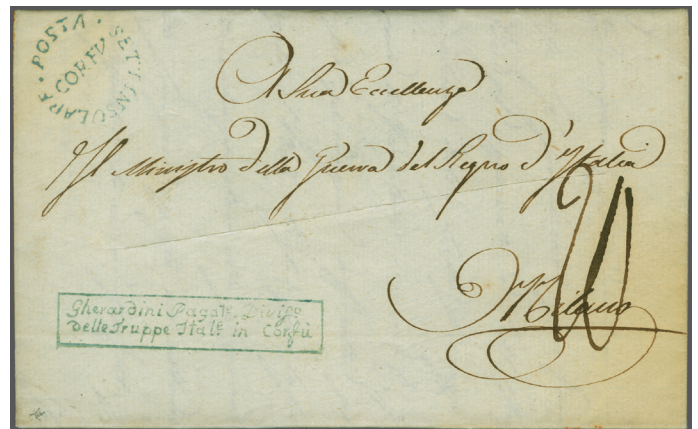 POSTA SETTINSULARE
CORFU
A Sua Eccellenza
Il Ministro della Guerra del Regno d'Italia
Milano
Gherardini Pagate. Divipo
delle Truppe Itale in Corfù